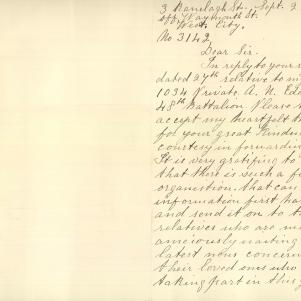 3 Ranelagh St., Sept. 2
off Waymouth St.
West City.
No 3142
Dear Sir.
In reply to your
dated 27th relative to m
1034 Private A. N. Ede
48th Battalion. Please
accept my heartfelt th
for your great kindn
courtesy in forwardin
It is very gratifying to
that there is such a fi
organistion. that can
information first ha
and send it on to t
relatives who are m
anxiously waiting
latest news concern
their loved ones who
taking part in this